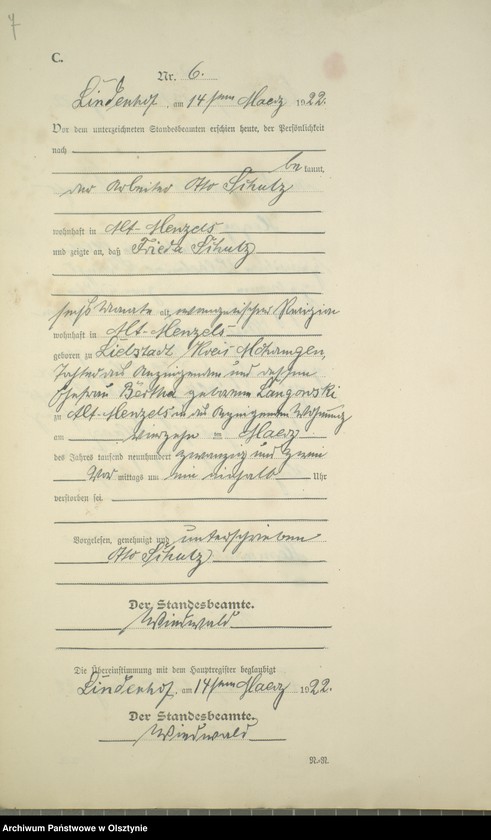 7
C.
Nr. 6.
Lindenhof, am 14ten Maerz 1922.
Vor dem unterzeichneten Standesbeamten erschien heute, der Persönlichkeit
nach
bekannt,
der Arbeiter Otto Schulz
wohnhaft in Alt-Menzels
und zeigte an, daß Frieda Schulz
sechs Monate alt, evangelischer Religion
wohnhaft in Alt-Menzels
geboren zu Liebstadt, Kreis Mohrungen,
Tochter des Anzeigenden und dessen
Ehefrau Bertha geborenen Langowski
zu Alt-Menzels in des Anzeigenden Wohnung
am vierzehn ten Maerz
des Jahres tausend neunhundert zwanzig und zwei
Vor mittags um ein einhalb Uhr
verstorben sei.
Vorgelesen, genehmigt und unterschrieben
Otto Schulz
Der Standesbeamte.
Die Übereinstimmung mit dem Hauptregister beglaubigt
Lindenhof, am 14ten Maerz 1922.
Der Standesbeamte.
Archiwum Państwowe w Olsztynie